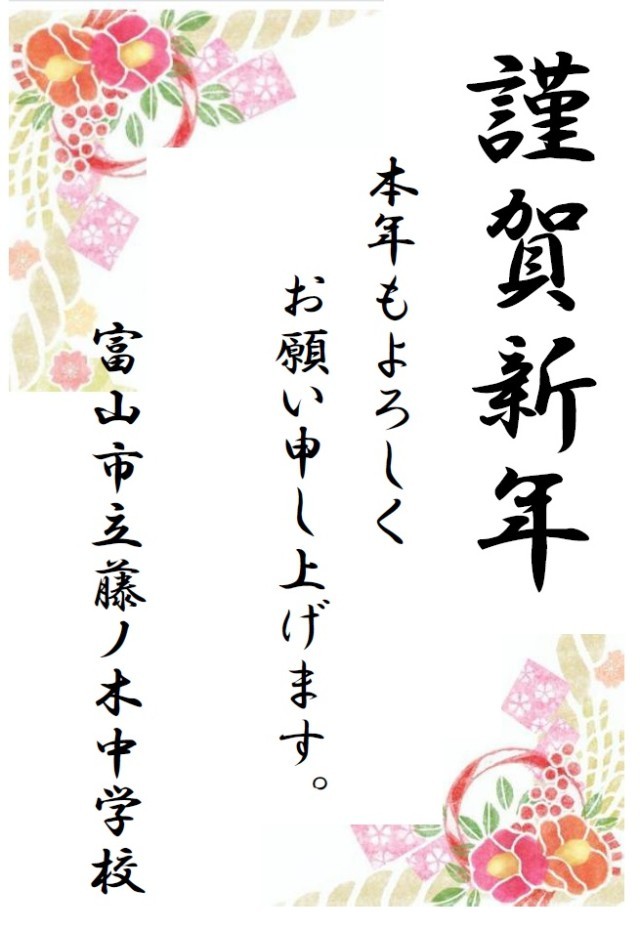 謹賀新年
本年もよろしく
お願い申し上げます。
富山市立藤ノ木中学校